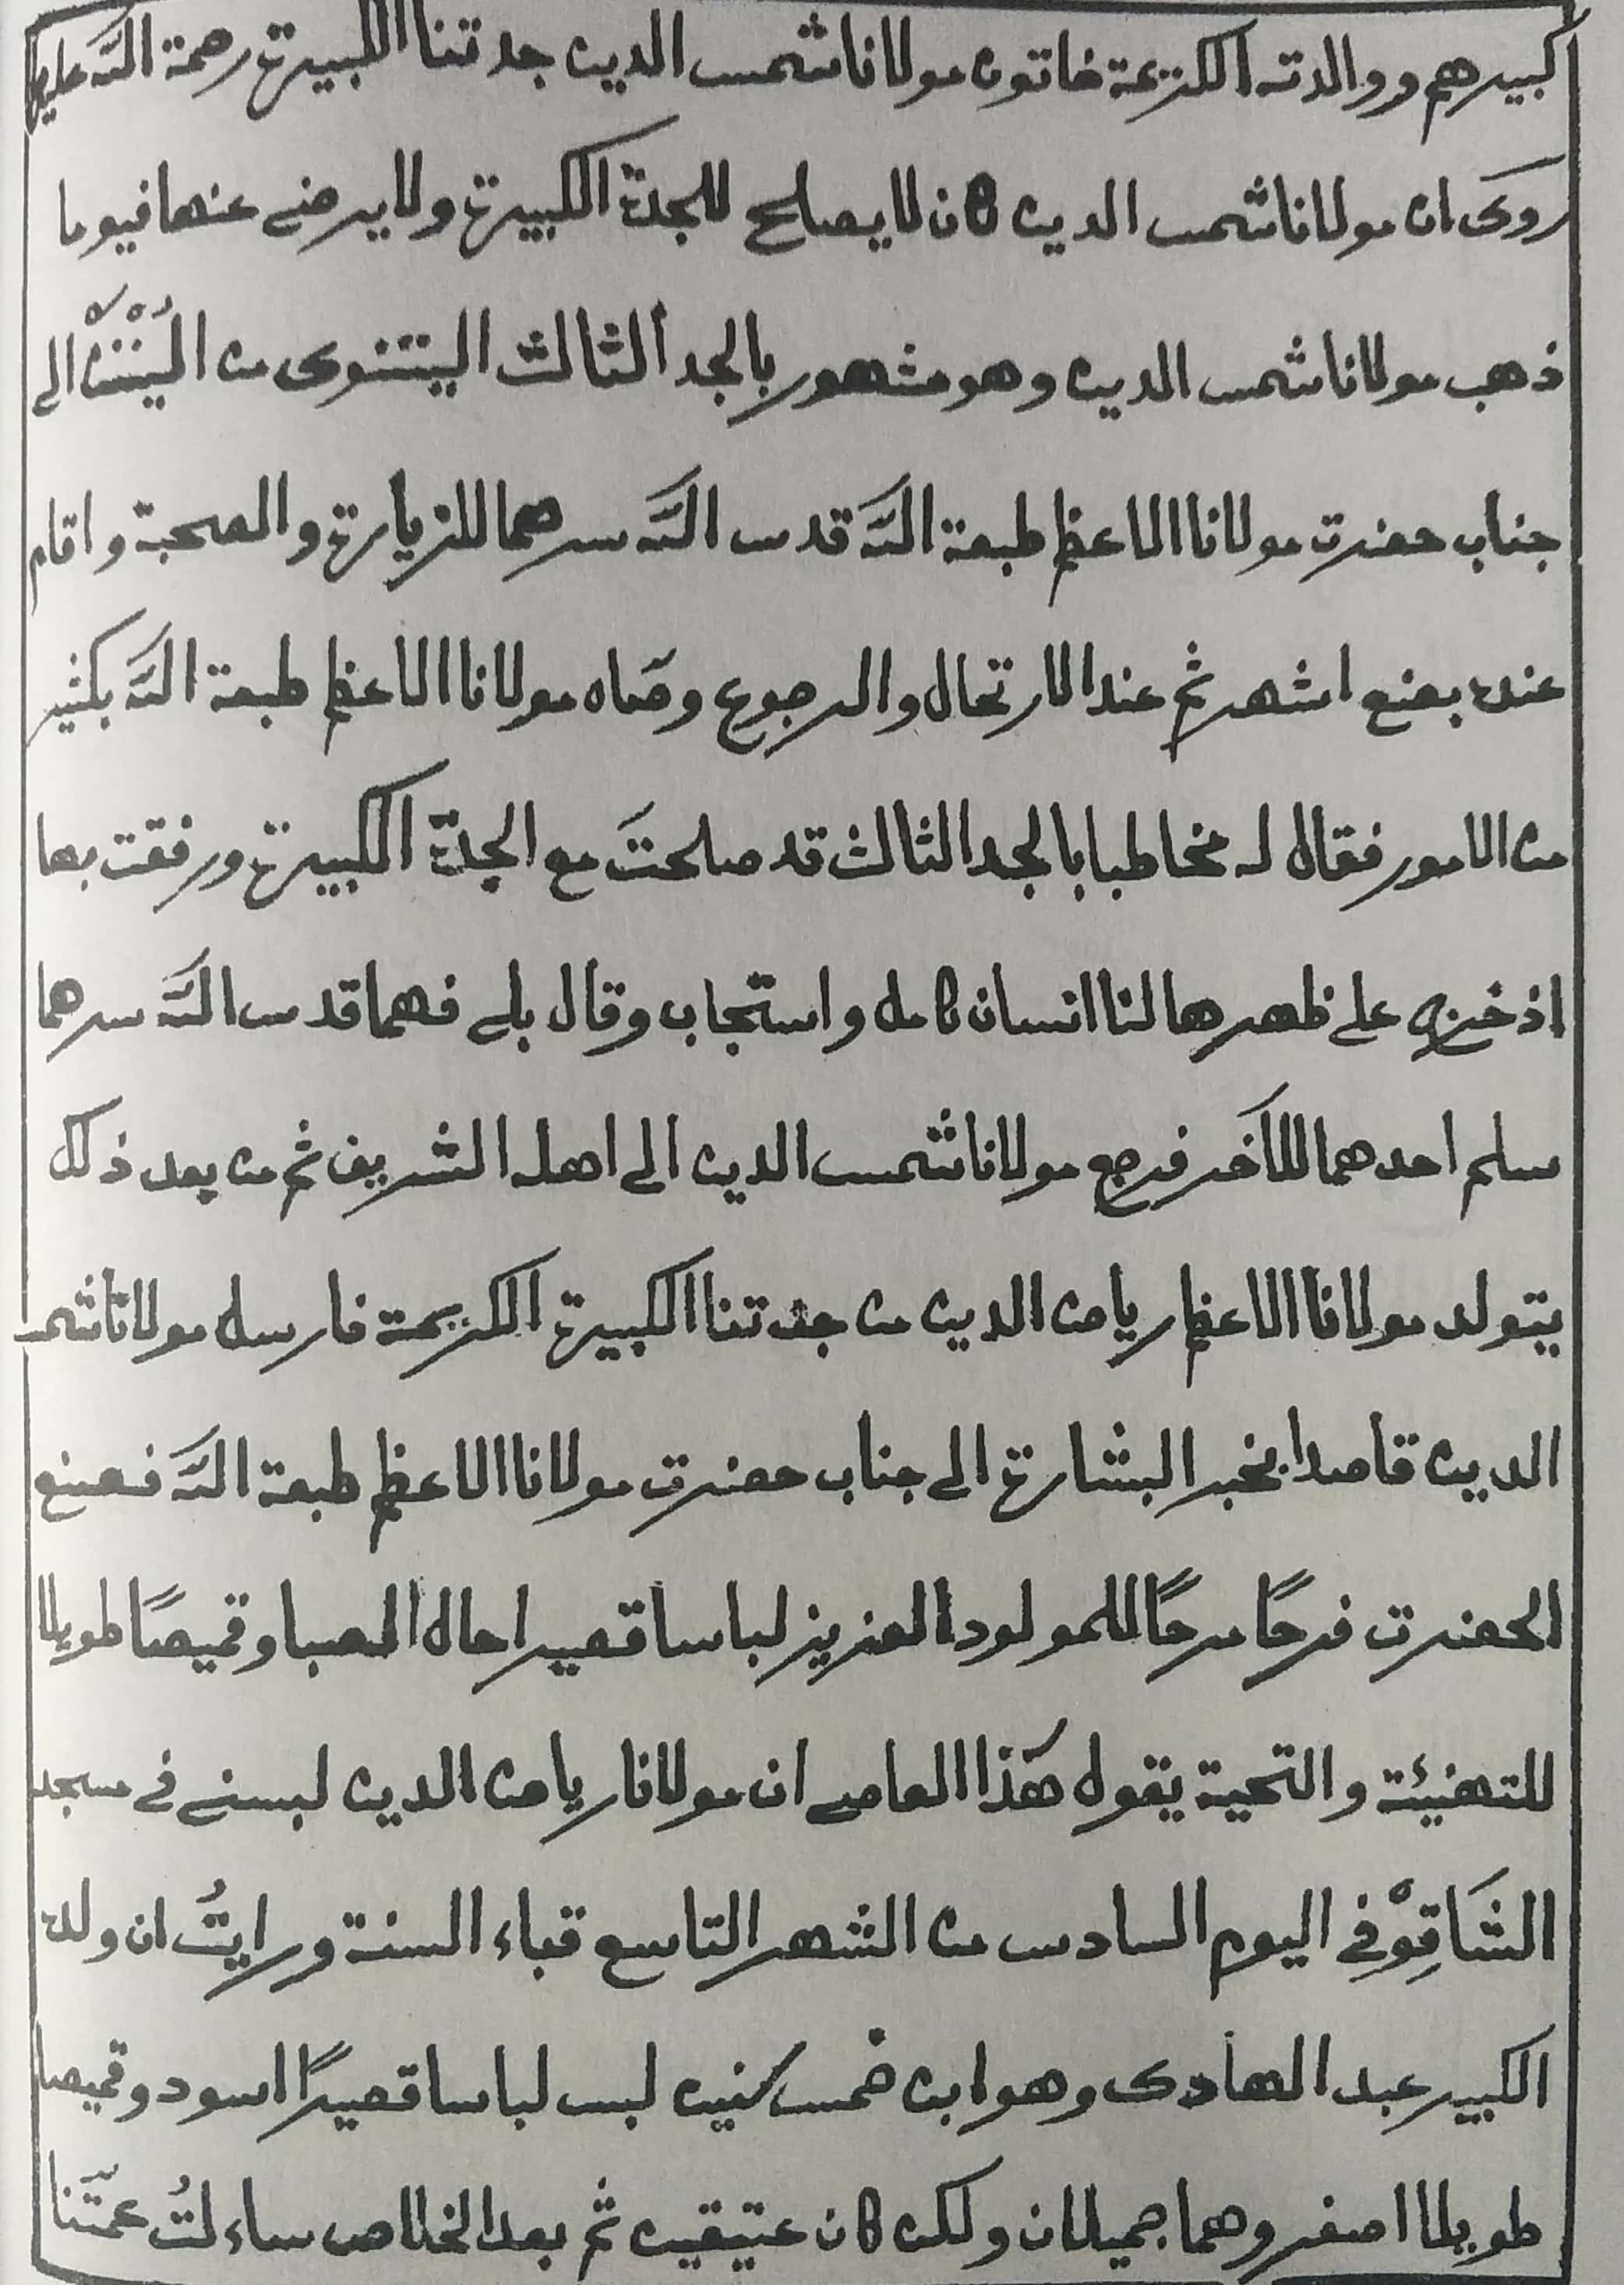 كبيرهم ووالدته الكريمة خاتون مولانا شمس الدين جدتنا الكبيرة رحمة الله عليها
روى ان مولانا شمس الدين كان لا يصلح للجدة الكبيرة ولا يرضى عنها فيوما
ذهب مولانا شمس الدين وهو مشهور بالجد الثالث الى
جناب حضرت مولانا الاعظم صبغة الله قدس الله سرهما للزيارة والصحبة واقام
عنده بضع اشهر ثم عند الارتحال والرجوع وصاه مولانا الاعظم صبغة الله بكثير
من الامور فقال له مخاطبا بالجد الثالث قد صلحت مع الجدة الكبيرة ورفقت بها
على ظهرها لنا انسان كامل واستجاب وقال بلى فهما قدس الله سرهما
سلم احدهما للآخر فرجع مولانا شمس الدين الى اهله الشريف ثم من بعد ذلك
يتولد مولانا الاعظم رياض الدين من جدتنا الكبيرة الكريمة فارسل مولانا شمس
الدين قاصدا بخبر البشارة الى جناب حضرت مولانا الاعظم صبغة الله فصنع
الحضرت فرحًا مرحًا للمولود العزيز لباسا قصيرا حال الصبا وقميصًا طويلا
للتهنيئة والتحية يقول هذا العاصى ان مولانا رياض الدين لبسنى فى مسجد
الشَاقِوْ فى اليوم السادس من الشهر التاسع قباء السنة ورايتُ ان ولده
الكبير عبد الهادى وهو ابن خمس سنين لبس لباسا قصيرًا اسود وقميصا
طويلا اصفر وهما جميلان ولكن كان عتيقين ثم بعد الخلاص ساءلتُ عمّتنا